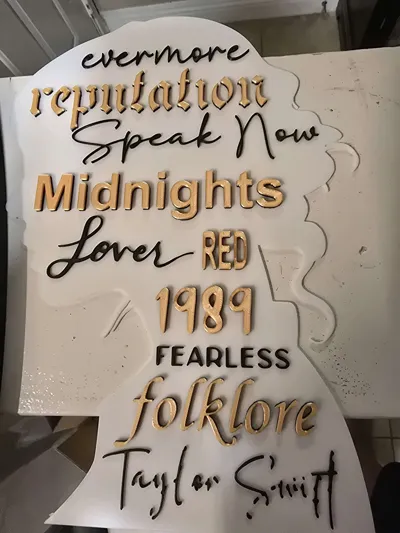 evermore
reputation
Speak Now
Midnights
Lover RED
1989
FEARLESS
folklore
Taylor Swift